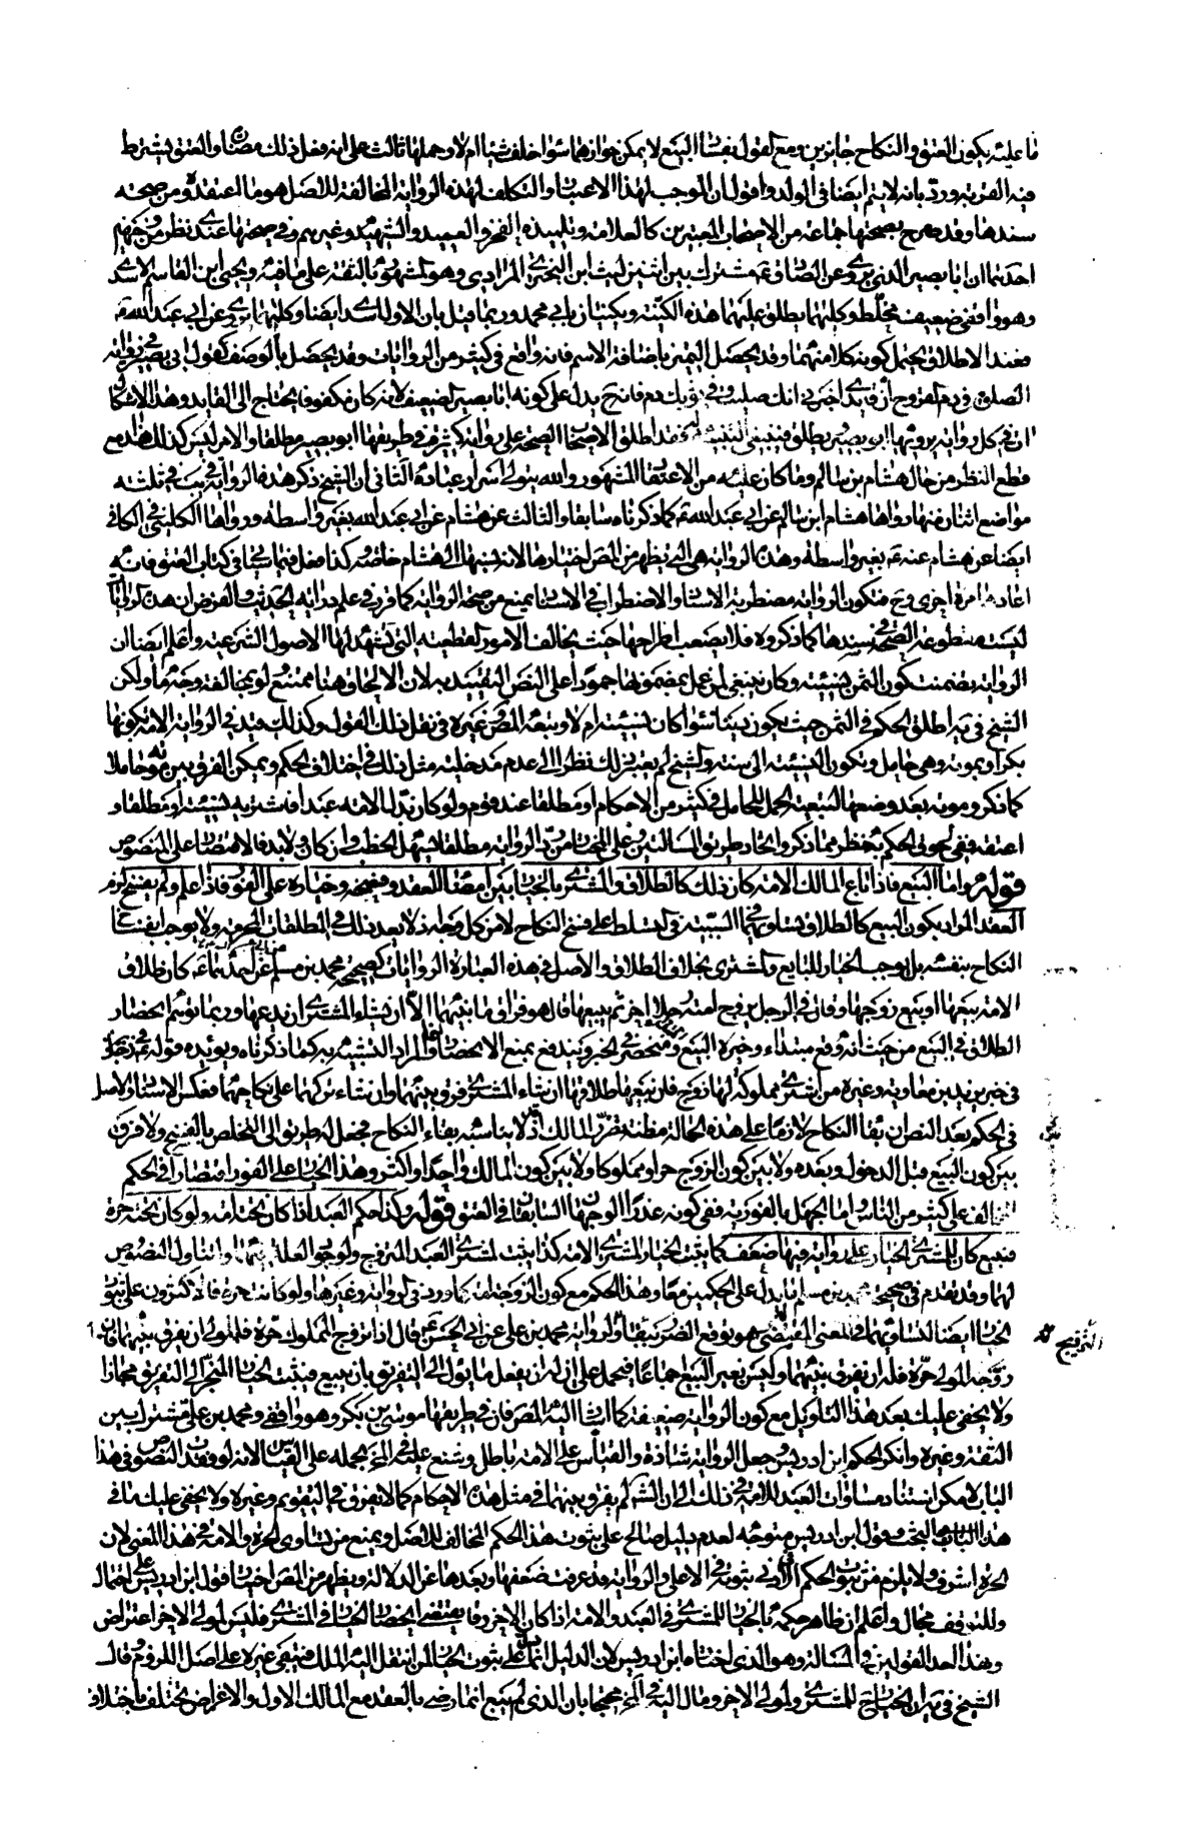 ما عليه يكون العتق والنكاح جايزين ومع القول بفساد البيع لا يمكن جوازهما سواء خلف شيئا ام لا وحملها ثالث على انه فعل ذلك مضارا والعتق يشترط
فيه القربة ورد بانه لا يتم ايضا في الولد واقول ان الموجب لهذا الاعتبار والتكلف لهذه الرواية المخالفة للاصل هو ما اعتقدوه من صحته
سندها وقد صرح بصحتها جماعة من الاصحاب المعتبرين كالعلامة وتلميذه الفخر والعميد والشهيد وغيرهم وفي صحتها عندي نظر من وجهين
احدهما ان ابا بصير الذي يروي عن الصادق ع مشترك بين اثنين ليث ابن البختري المرادي وهو المشهور بالثقة على ما فيه ويحيى ابن القاسم الاسدي
وهو واقفي ضعيف مخلط وكلاهما يطلق عليهما هذه الكنية ويكنيان بابي محمد وربما قيل بان الاول اسدي ايضا وكلاهما يروي عن ابي عبد الله ع
فعند الاطلاق يحتمل كونه كلا منهما وقد يحصل التميز باضافة الاسم فانه واقع في كثير من الروايات وقد يحصل بالوصف كقول ابي بصير في رواية
الصلوة في دم القروح ان قايدي اخبرني انك صليت وفي ثوبك دم فانه يدل على كونه ابا بصير الضعيف لانه كان مكفوفا يحتاج الى القايد وهذا الاشكال
ات في كل رواية يرويها ابو بصير ويطلق فينبغي التنبيه له فقد اطلق الاصحاب الصحة على روايات كثيرة في طريقها ابو بصير مطلقا والامر ليس كذلك هذا مع
قطع النظر من حال هشام بن سالم وما كان عليه من الاعتقاد المشهور والله يتولى اسرار عباده الثاني ان الشيخ ذكر هذه الرواية في يب في ثلثة
مواضع اثنان منها رواها هشام ابن سالم عن ابي عبد الله ع كما ذكرناه سابقا والثالث عن هشام عن ابي عبد الله بغير واسطة ورواها الكليني في الكافي
ايضا عن هشام عنه ع بغير واسطة وهذه الرواية هي التي يظهر من المص اختيارها لانه نسبها الى هشام خاصة كذا فعل فيما ياتي في كتاب العتق فانه
اعادها مرة اخرى وح فتكون الرواية مضطربة الاسناد والاضطراب في الاسناد يمنع من صحة الرواية كما قرر في علم دراية الحديث والغرض ان هذه الرواية
ليست مقطوعة الصحة في سندها كما ذكروه فلا يصعب اطراحها حيث يخالف الامور القطعية التي تشهد لها الاصول الشرعية واعلم ايضا ان
الرواية تضمنت كون الثمن نسيئة وكان ينبغي لمن عمل بمضمونها جمودا على النص التقييد به لان الالحاق هنا ممتنع لو يخالفه وجه ما ولكن
الشيخ في يه اطلق الحكم في الثمن حيث يكون دينا سواء كان نسيئة ام لا وتبعه المص وغيره في نقل ذلك القول وكذلك قيد في الرواية الامة بكونها
بكرا وبموته وهي حامل وبكون النسيئة الى سنة والشيخ لم يعتبر ذلك نظرا الى عدم مدخلية مثل ذلك في اختلاف الحكم ويمكن الفرق بين موته حاملا
كما ذكر وموته بعد وضعها لتبعية الحمل للحامل في كثير من الاحكام او مطلقا عند قوم ولو كان بدل الامة عبدا فاشتريه نسيئة او مطلقا و
اعتقه ففي لحوق الحكم به نظر مما ذكر واتحاد طريق المسالتين وعلى المختار من رد الرواية مطلقا يسهل الخطب وان كان ولا بد فالاقتصار على المنصوص
قوله واما البيع فاذا باع المالك الامة كان ذلك كالطلاق والمشتري بالخيار بين امضاء العقد وفسخه وخياره على الفور فاذا علم ولم يفسخ لزم
العقد المراد بكون البيع كالطلاق تساويهما في السببية في التسلط على فسخ النكاح لا من كل وجه اذ لا يعد ذلك في الطلقات المحرمة ولا يوجب انفساخ
النكاح بنفسه بل يوجب الخيار للبايع والمشتري بخلاف الطلاق والاصل في هذه العبارة الروايات كصحيحة محمد بن مسلم عن احدهما ع قال طلاق
الامة بيعها او بيع زوجها وقال في الرجل يزوج امته رجلا اخر ثم يبيعها قال هو فراق ما بينهما الا ان يشاء المشتري ان يدعها وربما توهم انحصار
الطلاق في البيع من حيث انه وقع مبتداء وخبره البيع ومنحصر في الخبر ويندفع بمنع الانحصار اولا المراد التشبيه به كما ذكرناه ويؤيده قوله ع
في خبر بريد بن معاوية وغيره من اشترى مملوكة لها زوج فان بيعها طلاقها ان شاء المشتري فرق بينهما وان شاء تركهما على نكاحهما فعكس الاسناد والاصل
في الحكم بعد النص ان بقاء النكاح لازما على هذه الحالة مظنة تضرر المالك اذ قد لا يناسبه بقاء النكاح فجعل له طريق الى التخلص بالفسخ ولا فرق
بين كون البيع قبل الدخول وبعده ولا بين كون الزوج حرا ومملوكا ولا بين كون المالك واحدا او اكثر وهذا الخيار على الفور اقتصارا في الحكم
المخالف على كثير من الناس واما الجهل بالفورية ففي كونه عذرا الوجهان السابقان في العتق قوله وكذا حكم العبد اذا كان تحته امة ولو كان تحته حرة
فبيع كان للمشتري الخيار على رواية فيها ضعف كما يثبت الخيار لمشتري الامة كذا يثبت لمشتري العبد المتزوج ولوجود العلة فيهما وتناول النصوص
لهما وقد تقدم في صحيحة محمد بن مسلم ما يدل على الحكمين معا وهذا الحكم مع كون الزوجة امة كما ورد في الرواية وغيرها ولو كانت حرة فالاكثرون على ثبوت
الخيار ايضا لتساويهما في المعنى المقتضي وهو توقع الضرر ببقائه ولرواية محمد بن علي عن ابي الحسن ع قال اذا تزوج المملوك حرة فللمولى ان يفرق بينهما فان
زوجه المولى حرة فله ان يفرق بينهما وليس بغير البيع اجماعا فيحمل على ان له ان يفعل ما يؤل الى التفريق بان يبيع فيثبت الخيار المنجر الى التفريق مجازا
ولا يخفى عليك بعد هذا التاويل مع كون الرواية ضعيفة كما اشار اليه المص فان في طريقها موسى بن بكر وهو واقفي ومحمد بن علي مشترك بين
الثقة وغيره وانكر الحكم ابن ادريس وجعل الرواية شاذة والقياس على الامة باطل وشنع عليه في المخ بحمله على القياس لانه لو فقدت النصوص في هذا
الباب لامكن استناد مساواة العبد للامة في ذلك الى ان الشرع لم يفرق بينهما في مثل هذه الاحكام كما لا يفرق في التقويم وغيره ولا يخفى عليك ما في
هذا الباب والبحث وقول ابن ادريس متوجه لعدم دليل صالح على ثبوت هذا الحكم المخالف للاصل ويمنع من تساوي الحرة والامة في هذا المعنى لان
الحرة اشرف ولا يلزم من ثبوت الحكم في الادنى ثبوته في الاعلى والرواية قد عرفت ضعفها وبعدها عن الدلالة ويظهر من المص اختيار قول ابن ادريس على احتمال
وللتوقف مجال واعلم ان ظاهر حكمه بالخيار للمشتري في العبد والامة اذا كان الاخر رقا يقتضي اختصاص الخيار في المشتري فليس لمولى الاخر اعتراض
وهذا احد القولين في المسالة وهو الذي اختاره ابن ادريس لان الدليل انما دل على ثبوت الخيار لمن انتقل اليه الملك فيبقى غيره على اصل اللزوم قال
الشيخ في يه ان الخيار ثابت للمشتري ولمولى الاخر ومال اليه في المخ محتجا بان الذي لم يبع انما رضي بالعقد مع المالك الاول والاغراض تختلف باختلاف